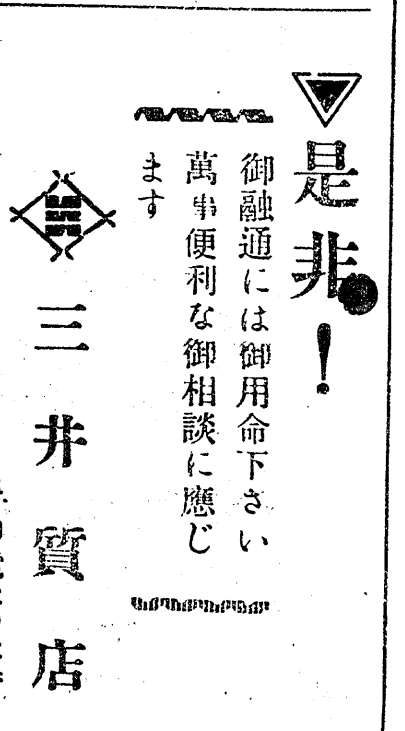 是非!
御融通には御用命下さい
萬事便利な御相談に應じ
ます
三井質店